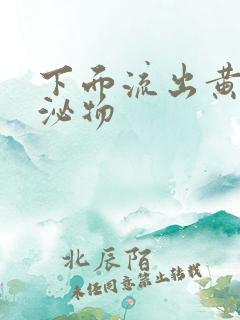 下而流出黄
泌物
北辰陌
未经同意禁止转载